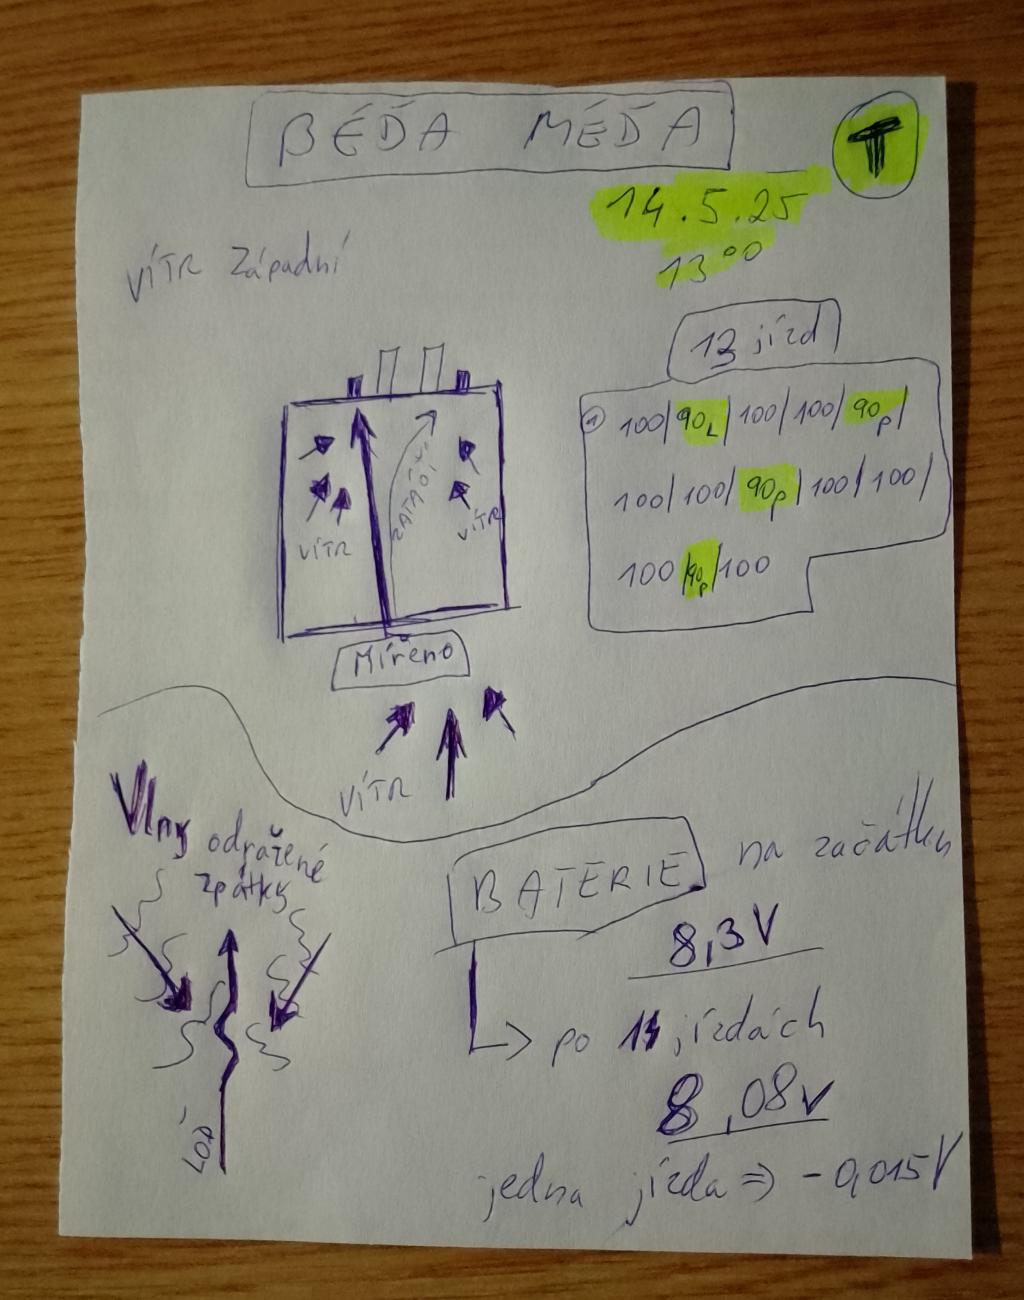 BÉĎA MÉĎA
T
14.5.25
13⁰⁰
VÍTR Západní
13 jízd
① 100/90L/100/100/90p/
100/100/90p/100/100/
100/90p/100
VÍTR
ZATÁČÍ
VÍTR
Mířeno
VÍTR
Vlny odražené
zpátky
LOĎ
BATERIE na začátku
8,3V
po jízdách
8,08V
jedna jízda ⇒ -0,015V